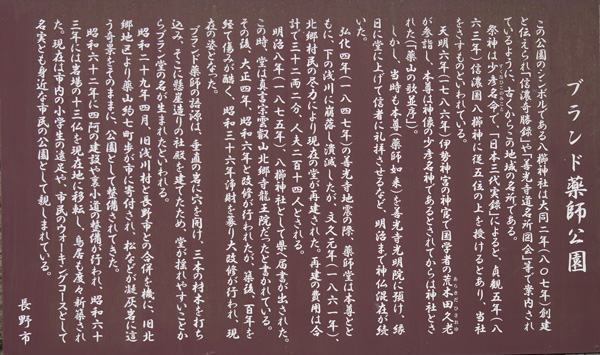 ブランド薬師公園
この公園のシンボルである八櫛神社は大同二年（八〇七年）創建
と伝えられ「信濃奇勝録」や「善光寺道名所図会」等で案内され
ているように、古くからこの地域の名所である。
祭神は少彦名命で、「日本三代実録」によると、貞観五年（八
六三年）信濃国八櫛神に従五位の上を授けるとあり、当社
をさすものといわれている。
天明六年（一七八六年）伊勢神宮の神官で国学者の荒木田久老
が参詣し、本尊は神像の少彦名神であるとされてからは神社とさ
れた（「薬山の歌並序」）。
しかし、当時も本尊（薬師如来）を善光寺光明院に預け、縁
日に堂に上げて信者に礼拝させるなど、明治まで神仏混在が続
いた。
弘化四年（一八四七年）の善光寺地震の際、薬師堂は本尊とと
もに、下の浅川に崩落し潰滅したが、文久元年（一八六一年）、
北郷村民の尽力により現在の堂が再建された。再建の費用は合
計で三十二両二分、人夫二百十四人とされる。
明治八年（一八七五年）、八櫛神社として県へ届書が出された。
この時、堂は真言宗雲叡山北郷寺龍王院だったと書かれている。
その後、大正四年、昭和六年と改修が行われたが、築後、百年を
経て傷みが酷く、昭和三十六年浄財を募り大改修が行われ、現
在の姿となった。
ブランド薬師の語源は、垂直の岩に穴を開け、三本の材木を打ち
込み、そこに懸崖造りの社殿を建てたため、堂が揺れやすいことか
らブラン堂の名が生まれたといわれる。
昭和二十九年四月、旧浅川村と長野市との合併を機に、旧北
郷地区より薬山約七町歩が市に寄付され、松などが凝灰岩に這
う奇景をそのままに、公園として整備されてきた。
昭和六十二年に四阿の建設や裏小道の整備が行われ、昭和六十
三年には岩場の十三仏を現在地に移転し、鳥居も度々新築され
た。現在は市内の小学生の遠足や、市民のウォーキングコースとして
名実とも身近な市民の公園として親しまれている。
長野市